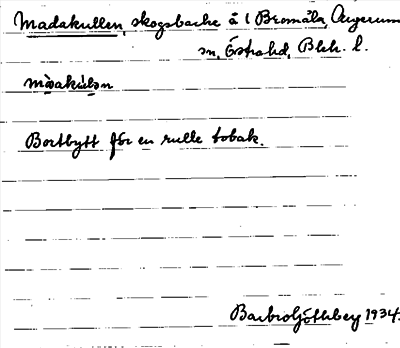 Madakullen, skogsbacke å 1 Bromåla, Augerum
sn, Östra hd, Blek. l.
Bortbytt för en rulle tobak.
Barbro Göthberg 1934.